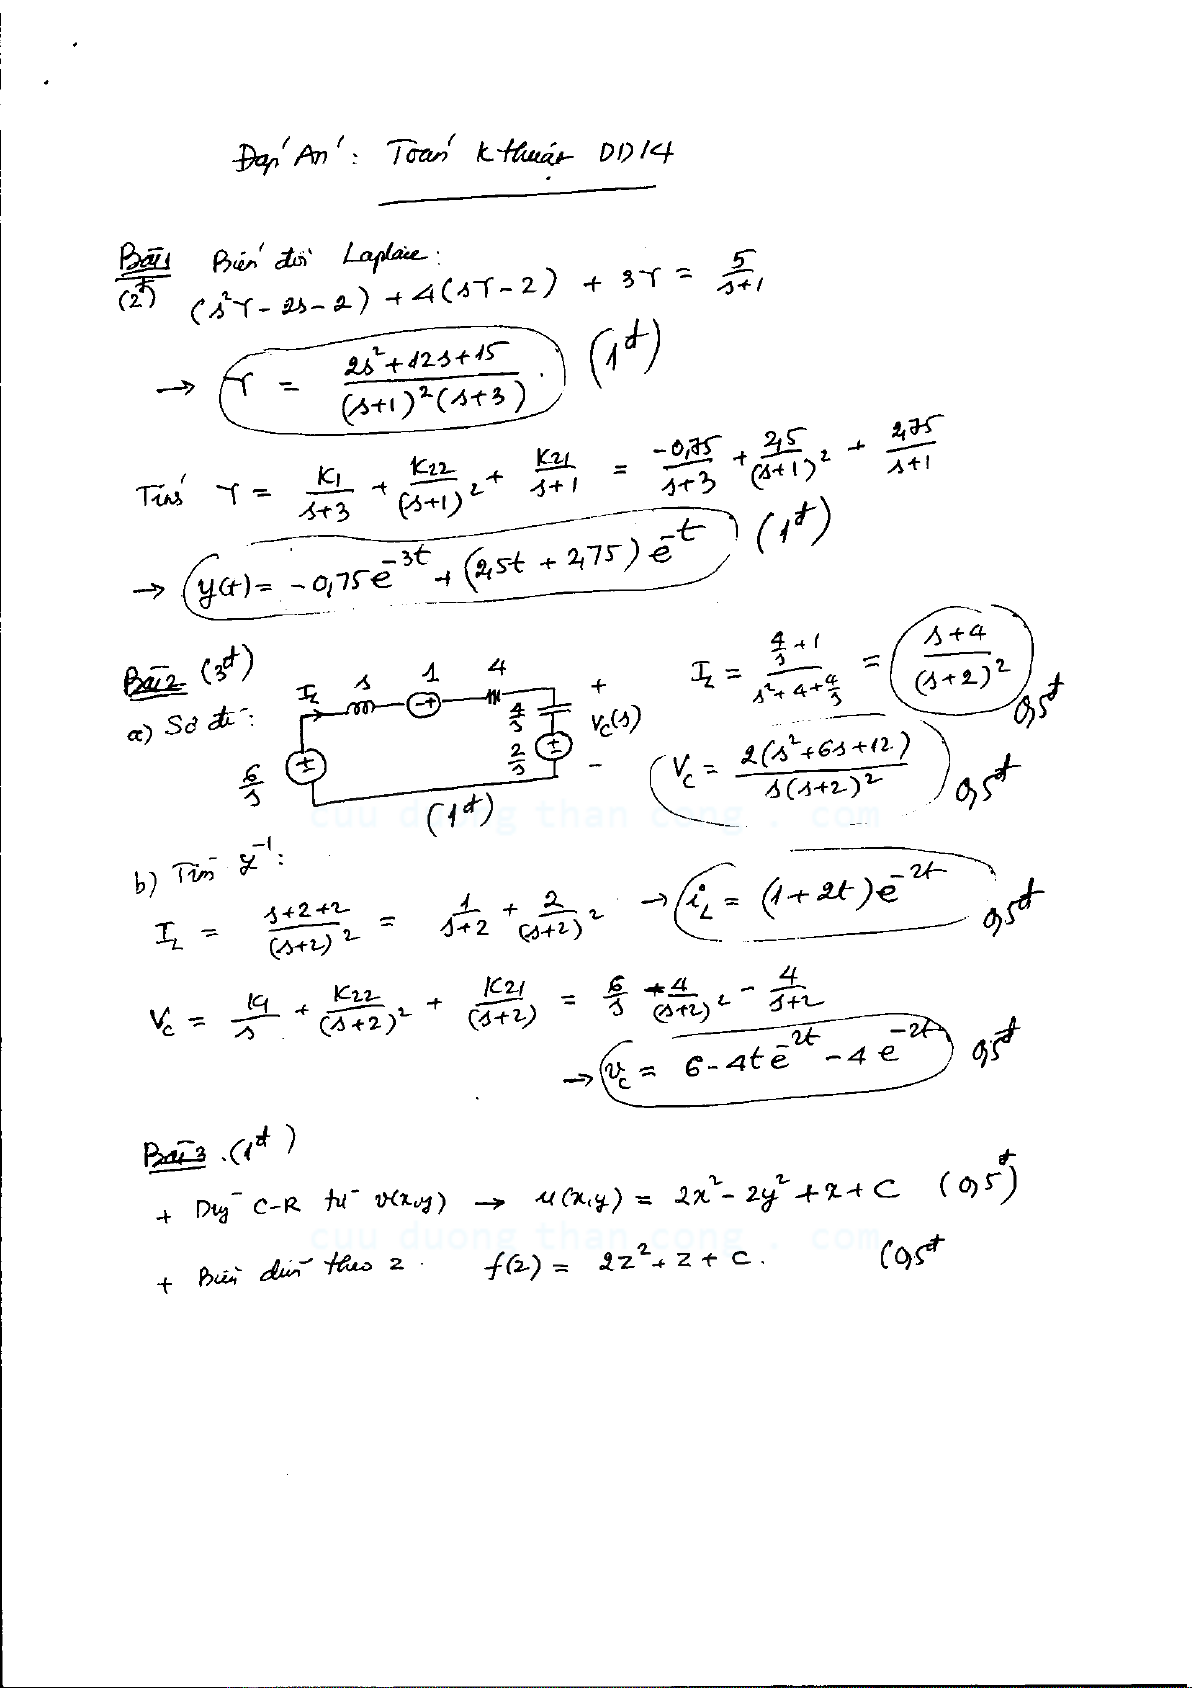 Đáp Án : Toán Kthuật DD14
Bài 1 Biến đổi Laplace :
(2đ) (s²Y - 2s - 2) + 4(sY - 2) + 3Y = 5/(s+1)
→ Y = (2s² + 12s + 15)/((s+1)²(s+3)) . (1đ)
Tính Y = K1/(s+3) + K22/(s+1)² + K21/(s+1) = -0,75/(s+3) + 2,5/(s+1)² + 2,75/(s+1)
→ y(t) = -0,75e^{-3t} + (2,5t + 2,75) e^{-t} (1đ)
Bài 2 (3đ)
a) Sơ đồ :
I_L s 1 4
- +
6/s ±
4/s
2/s ±
+
Vc(s)
-
(1đ)
I_L = (4/s + 1)/(s² + 4 + 4/s) = (s+4)/(s+2)² 0,5đ
Vc = 2(s² + 6s + 12)/(s(s+2)²) 0,5đ
cuu duong than cong . com
b) Tìm ℒ^{-1} :
I_L = (s+2+2)/(s+2)² = 1/(s+2) + 2/(s+2)² → i_L = (1 + 2t) e^{-2t} 0,5đ
Vc = K1/s + K22/(s+2)² + K21/(s+2) = 6/s + -4/(s+2)² - 4/(s+2)
→ vc = 6 - 4te^{-2t} - 4e^{-2t} 0,5đ
Bài 3 . (1đ)
+ Dùng C-R từ v(x,y) → u(x,y) = 2x² - 2y² + x + C (0,5đ)
cuu duong than cong . com
+ Biểu diễn theo z . f(z) = 2z² + z + C . (0,5đ